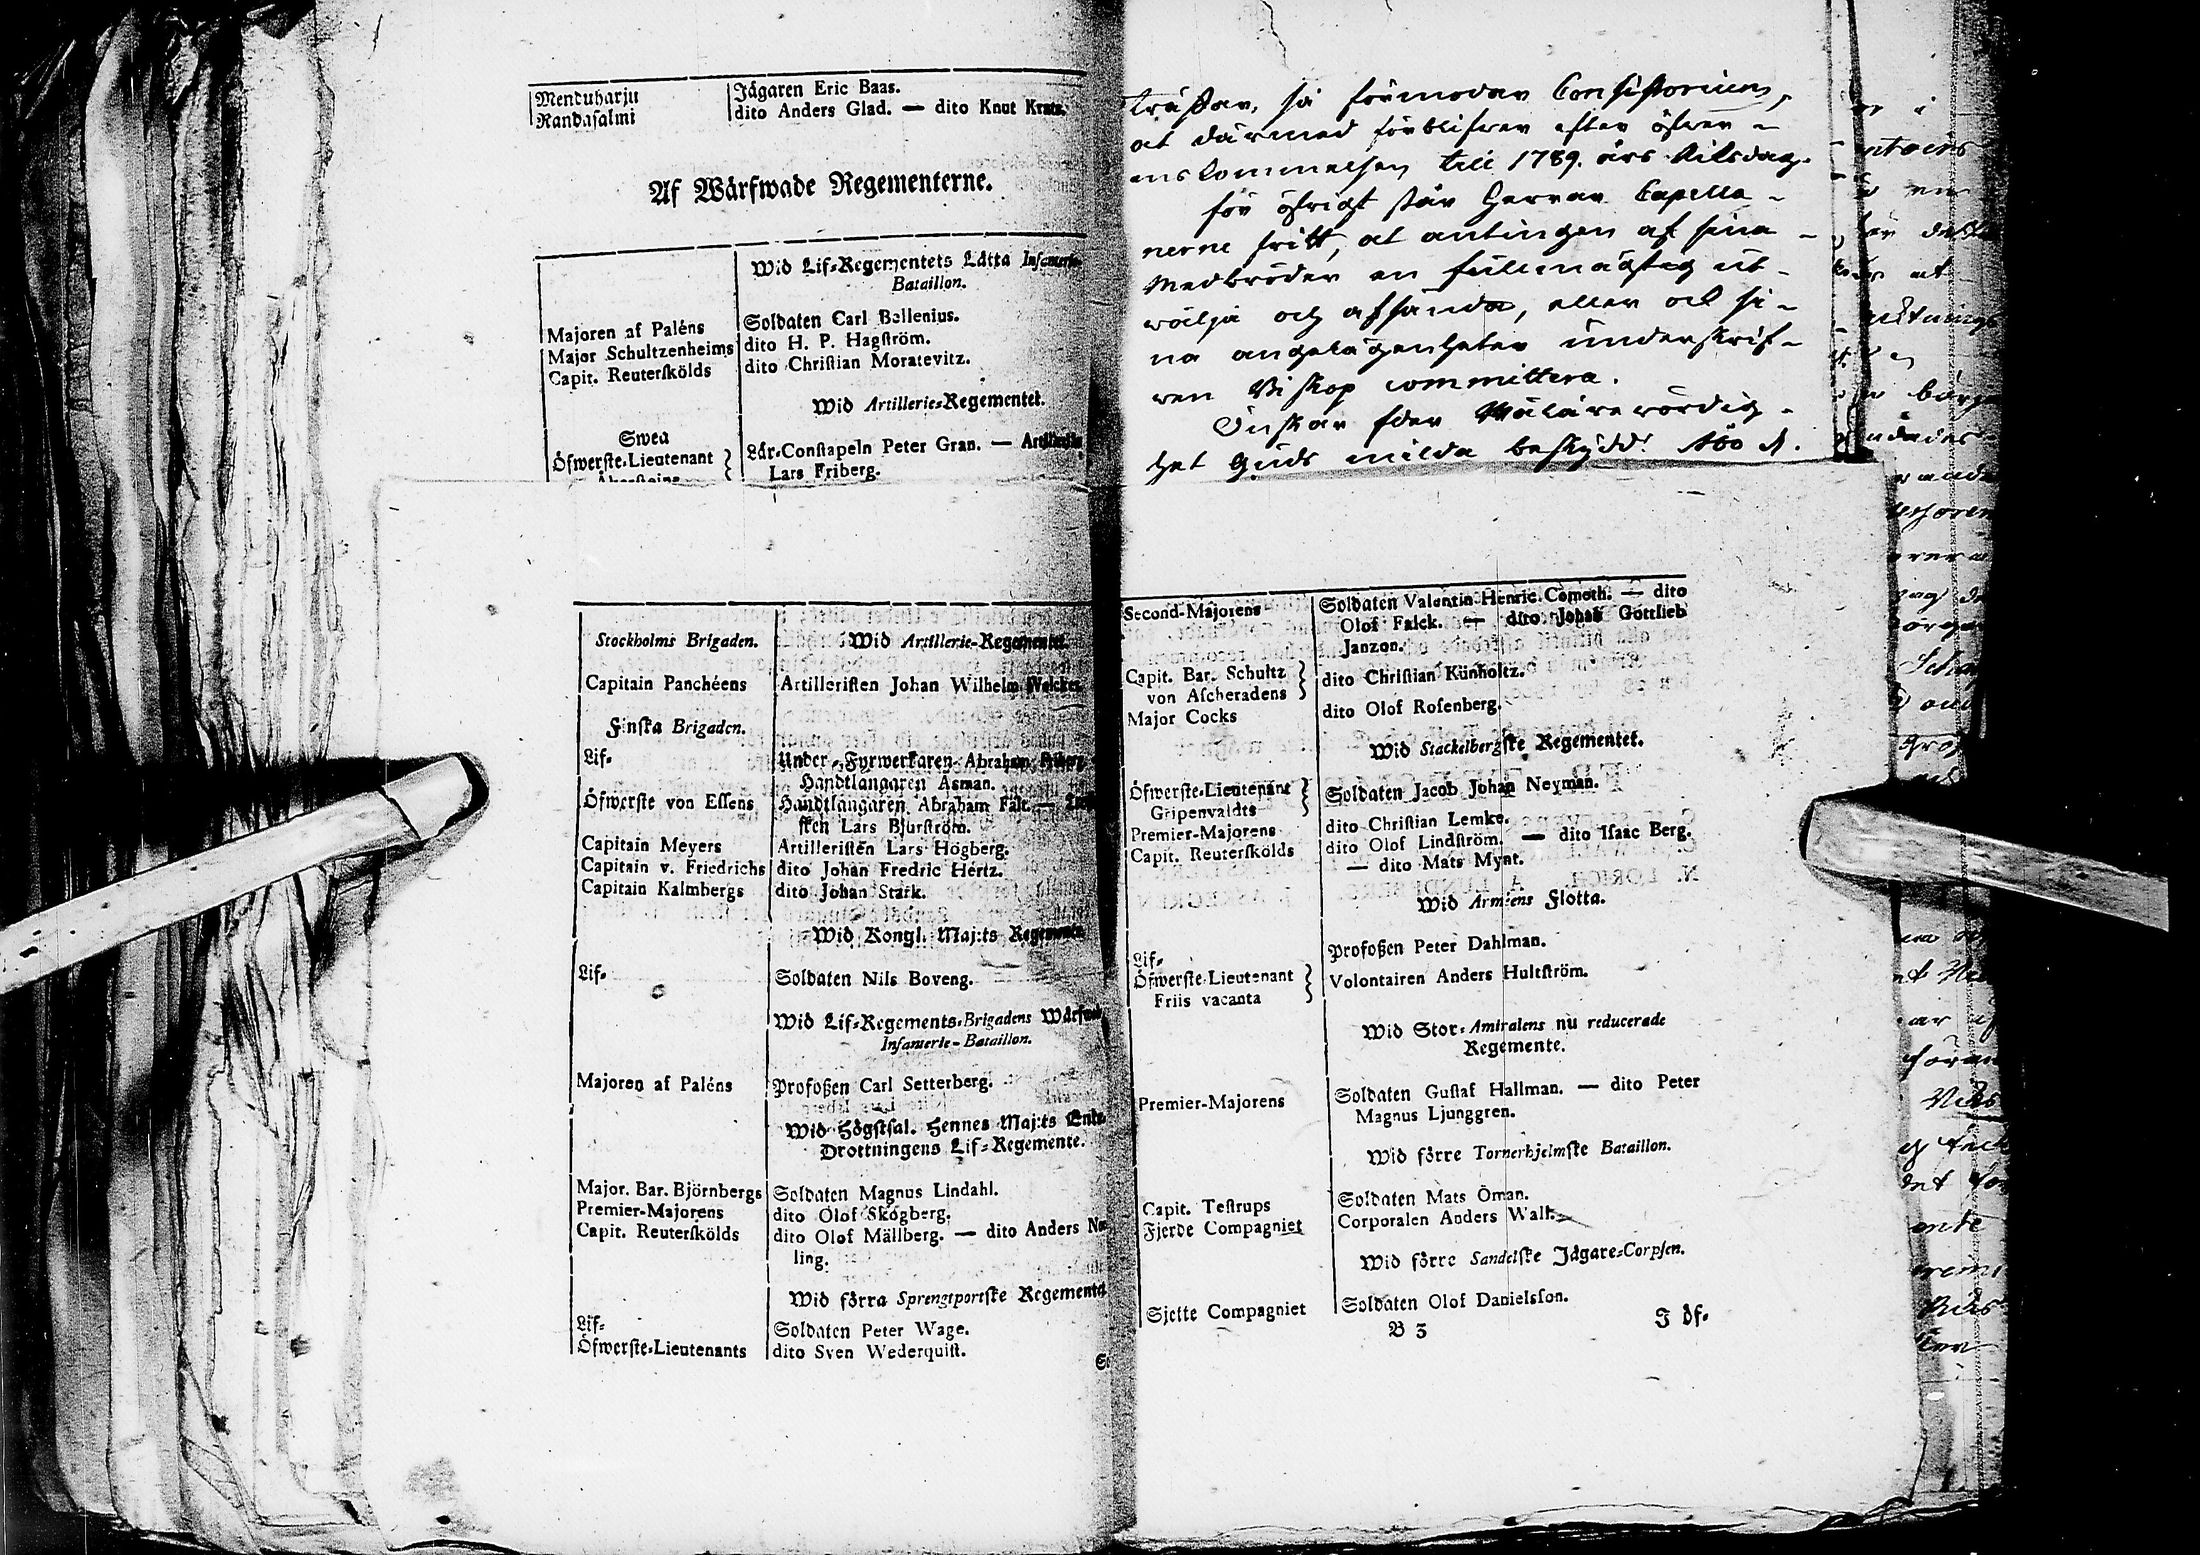 Menduharju
Randasalmi
Jägaren Eric Baas.
dito Anders Glad. — dito Knut Kratz.
Af Wärfwade Regementerne.
Wid Lif-Regementets Lätta Infanterie-
Bataillon.
Majoren af Paléns
Soldaten Carl Ballenius.
Major Schultzenheims
dito H. P. Hagström.
Capit. Reuterskölds
dito Christian Moratevitz.
Wid Artillerie-Regementet.
Swea
Öfwerste-Lieutenant
Lär-Constapeln Peter Gran. —
Lars Friberg.
träffar, så förmodar Consistorium,
at därmed förblifwer efter öfwer-
enskommelsen till 1789. års Riksdag.
för öfrigt står Herrar Capella-
nerne fritt, at antingen af sina
Medbröder en fullmägtig ut-
wälja och afsända, eller ock si-
na angelägenheter underskrif-
wen Biskop committera.
Önskar Eder Wälärewördig-
het Guds milda beskydd! Åbo d.
Stockholms Brigaden.
Wid Artillerie-Regementet.
Capitain Panchéens
Artilleristen Johan Wilhelm
Finska Brigaden.
Lif-
Under-Fyrwerkaren Abraham
Handtlangaren Asman.
Öfwerste von Essens
Handtlangaren Abraham Fält. —
sten Lars Bjurström.
Capitain Meyers
Artilleristen Lars Högberg.
Capitain v. Friedrichs
dito Johan Fredric Hertz.
Capitain Kalmbergs
dito Johan Stark.
Wid Kongl. Maj:ts Regemente.
Lif-
Soldaten Nils Boveng.
Wid Lif-Regements-Brigadens Wärfwade
Infanterie-Bataillon.
Majoren af Paléns
Profoßen Carl Setterberg.
Wid Högstsal. Hennes Maj:ts Enke-
Drottningens Lif-Regemente.
Major. Bar. Björnbergs
Soldaten Magnus Lindahl.
Premier-Majorens
dito Olof Skogberg.
Capit. Reuterskölds
dito Olof Mällberg. — dito Anders
ling.
Wid förra Sprengtportske Regementet
Lif-
Soldaten Peter Wage.
Öfwerste-Lieutenants
dito Sven Wederquist.
Second-Majorens
Soldaten Valentin Henric Cometh. — dito
Olof Falck. — dito Johan Gottlieb
Janzon.
Capit. Bar. Schultz
von Ascheradens
dito Christian Künholtz.
Major Cocks
dito Olof Rosenberg.
Wid Stackelbergske Regementet.
Öfwerste-Lieutenant
Gripenvaldts
Soldaten Jacob Johan Neyman.
Premier-Majorens
dito Christian Lemke.
Capit. Reuterskölds
dito Olof Lindström. — dito Isaac Berg.
— dito Mats Mynt.
Wid Arméens Flotta.
Lif-
Profoßen Peter Dahlman.
Öfwerste-Lieutenant
Friis vacanta
Volontairen Anders Hultström.
Wid Stor-Amiralens nu reducerade
Regemente.
Premier-Majorens
Soldaten Gustaf Hallman. — dito Peter
Magnus Ljunggren.
Wid förre Tornerhjelmske Bataillon.
Capit. Testrups
Soldaten Mats Öman.
Fjerde Compagniet
Corporalen Anders Wall.
Wid förre Sandelske Jägare-Corpsen.
Sjette Compagniet
Soldaten Olof Danielsson.
B 3
I öf-